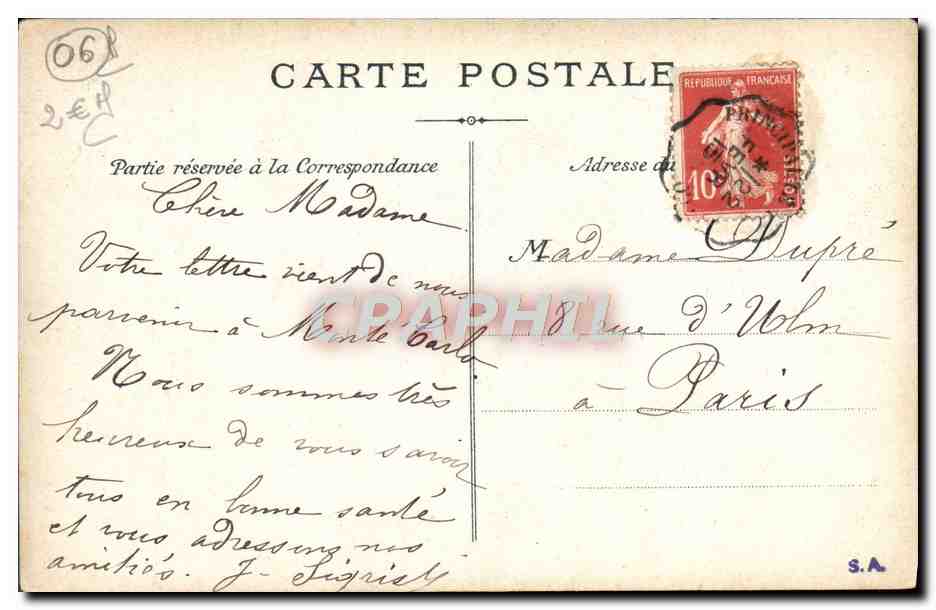 06
2€
CARTE POSTALE
REPUBLIQUE FRANCAISE
10
Partie réservée à la Correspondance
Adresse du
Chère Madame
Votre lettre vient de nous
parvenir à Monte Carlo
Nous sommes très
heureux de vous savoir
tous en bonne santé
et vous adressons nos
amitiés. J. Sigrist
Madame Dupré
8 rue d'Ulm
à Paris
CPAPHIL
S.A.